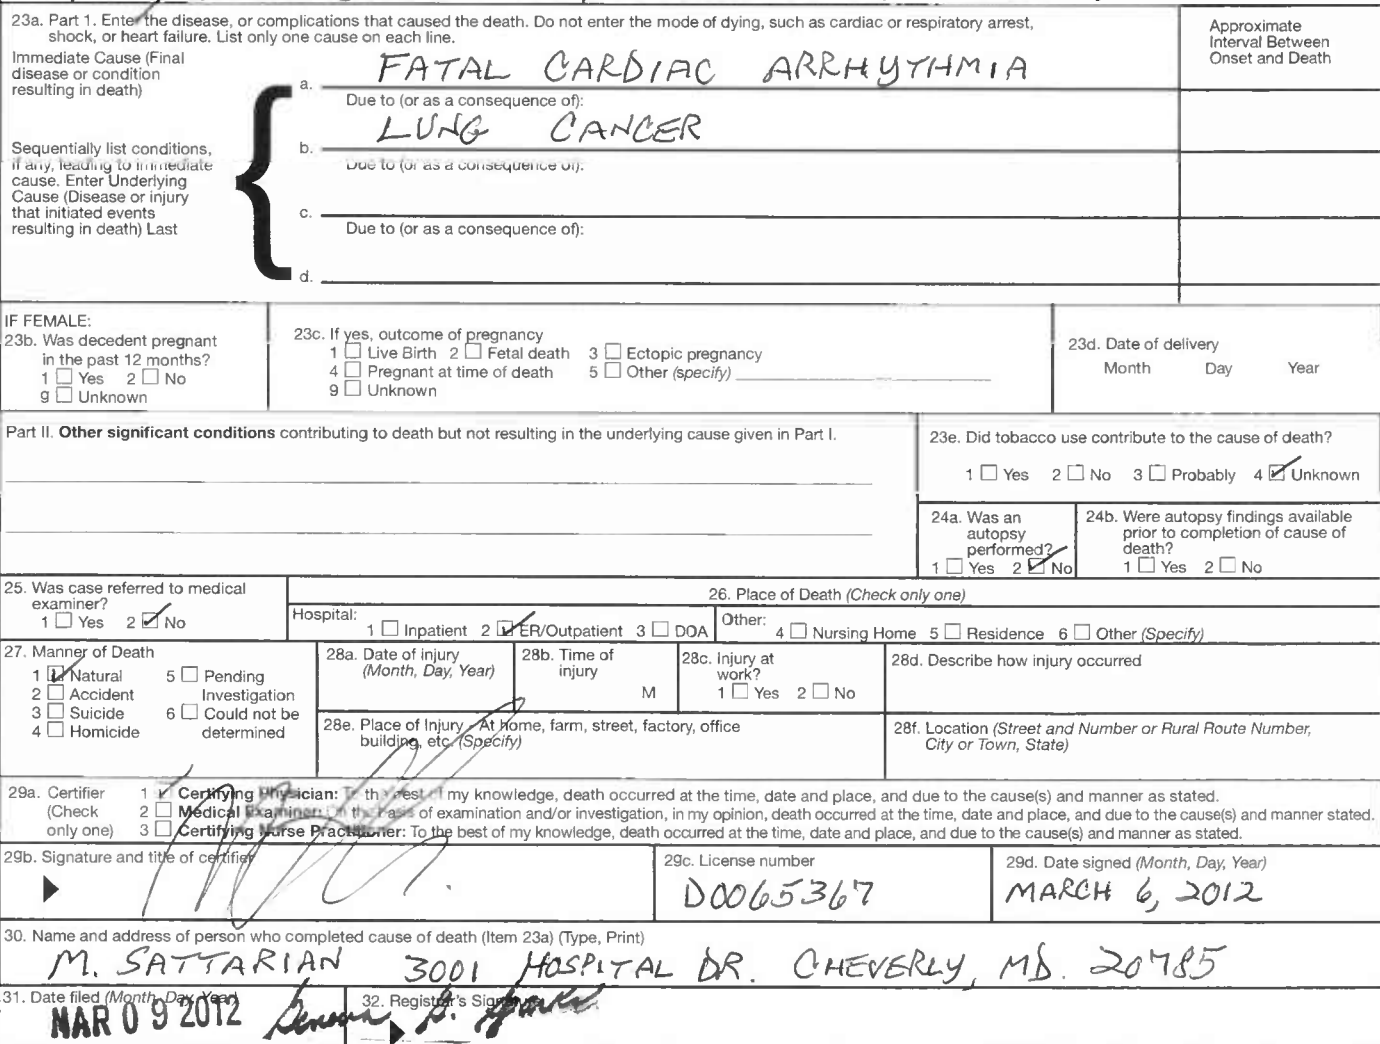 23a. Part 1. Enter the disease, or complications that caused the death. Do not enter the mode of dying, such as cardiac or respiratory arrest,
shock, or heart failure. List only one cause on each line.
Approximate
Interval Between
Onset and Death
Immediate Cause (Final
disease or condition
resulting in death)
a. FATAL CARDIAC ARRHYTHMIA
Due to (or as a consequence of):
b. LUNG CANCER
Sequentially list conditions,
if any, leading to immediate
cause. Enter Underlying
Cause (Disease or injury
that initiated events
resulting in death) Last
Due to (or as a consequence of):
c.
Due to (or as a consequence of):
d.
IF FEMALE:
23b. Was decedent pregnant
in the past 12 months?
1 Yes 2 No
9 Unknown
23c. If yes, outcome of pregnancy
1 Live Birth 2 Fetal death 3 Ectopic pregnancy
4 Pregnant at time of death 5 Other (specify)
9 Unknown
23d. Date of delivery
Month Day Year
Part II. Other significant conditions contributing to death but not resulting in the underlying cause given in Part I.
23e. Did tobacco use contribute to the cause of death?
1 Yes 2 No 3 Probably 4 Unknown
24a. Was an
autopsy
performed?
1 Yes 2 No
24b. Were autopsy findings available
prior to completion of cause of
death?
1 Yes 2 No
25. Was case referred to medical
examiner?
1 Yes 2 No
26. Place of Death (Check only one)
Hospital:
1 Inpatient 2 ER/Outpatient 3 DOA
Other:
4 Nursing Home 5 Residence 6 Other (Specify)
27. Manner of Death
1 Natural 5 Pending
2 Accident Investigation
3 Suicide 6 Could not be
4 Homicide determined
28a. Date of injury
(Month, Day, Year)
28b. Time of
injury
M
28c. Injury at
work?
1 Yes 2 No
28d. Describe how injury occurred
28e. Place of Injury - At home, farm, street, factory, office
building, etc. (Specify)
28f. Location (Street and Number or Rural Route Number,
City or Town, State)
29a. Certifier
(Check
only one)
1 Certifying Physician: To the best of my knowledge, death occurred at the time, date and place, and due to the cause(s) and manner as stated.
2 Medical Examiner: On the basis of examination and/or investigation, in my opinion, death occurred at the time, date and place, and due to the cause(s) and manner stated.
3 Certifying Nurse Practitioner: To the best of my knowledge, death occurred at the time, date and place, and due to the cause(s) and manner as stated.
29b. Signature and title of certifier
29c. License number
D0065367
29d. Date signed (Month, Day, Year)
MARCH 6, 2012
30. Name and address of person who completed cause of death (Item 23a) (Type, Print)
M. SATTARIAN 3001 HOSPITAL DR. CHEVERLY, MD. 20785
31. Date filed (Month, Day, Year)
MAR 09 2012
32. Registrar's Signature